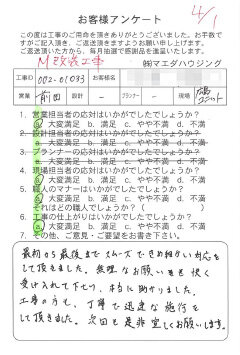 お客様アンケート
4/1
この度は工事のご用命を頂きありがとうございました。お手数で
すがご記入頂き、ご返送頂きますようお願い申し上げます。
ご返送頂いた方から、毎月抽選で感謝品を進呈いたします。
M 改装工事
㈱マエダハウジング
工事ID 002-01033 お客様名
営業 前田 設計 − プランナー − 現場
1. 営業担当者の応対はいかがでしたでしょうか？
a.大変満足 b.満足 c.やや不満 d.不満
2. 設計担当者の応対はいかがでしたでしょうか？
a.大変満足 b.満足 c.やや不満 d.不満
3. プランナーの応対はいかがでしたでしょうか？
a.大変満足 b.満足 c.やや不満 d.不満
4. 現場担当者の応対はいかがでしたでしょうか？
a.大変満足 b.満足 c.やや不満 d.不満
5. 職人のマナーはいかがでしたでしょうか？
a.大変満足 b.満足 c.やや不満 d.不満
それはどの職人でしょうか？（ ）
6. 工事の仕上がりはいかがでしたでしょうか？
a.大変満足 b.満足 c.やや不満 d.不満
7. その他、ご意見・ご要望をお書き下さい。
最初から最後までスムーズできめ細かい対応を
して頂きました。無理なお願いも快く
受け入れて下さり、本当に助かりました。
工事のうも、丁寧で迅速な施行を
して頂きました。次回も是非宜しくお願いします。